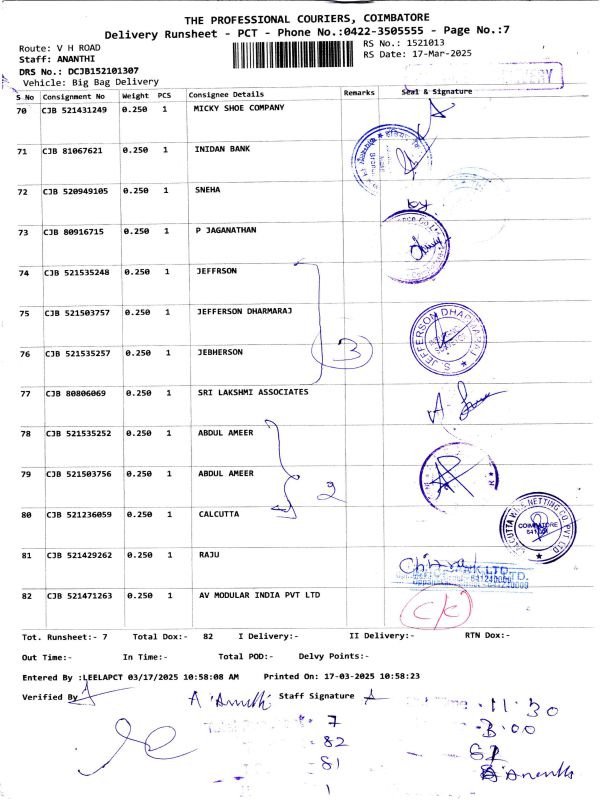 THE PROFESSIONAL COURIERS, COIMBATORE
Delivery Runsheet - PCT - Phone No.:0422-3505555 - Page No.:7
Route: V H ROAD
RS No.: 1521013
Staff: ANANTHI
RS Date: 17-Mar-2025
DRS No.: DCJB152101307
Vehicle: Big Bag Delivery
S No Consignment No Weight PCS Consignee Details Remarks Seal & Signature
70 CJB 521431249 0.250 1 MICKY SHOE COMPANY
71 CJB 81067621 0.250 1 INIDAN BANK
72 CJB 520949105 0.250 1 SNEHA
73 CJB 80916715 0.250 1 P JAGANATHAN
74 CJB 521535248 0.250 1 JEFFRSON
75 CJB 521503757 0.250 1 JEFFERSON DHARMARAJ
S. JEFFERSON DHARMARAJ
76 CJB 521535257 0.250 1 JEBHERSON
3
77 CJB 80806069 0.250 1 SRI LAKSHMI ASSOCIATES
78 CJB 521535252 0.250 1 ABDUL AMEER
79 CJB 521503756 0.250 1 ABDUL AMEER
2
80 CJB 521236059 0.250 1 CALCUTTA
COIMBATORE
81 CJB 521429262 0.250 1 RAJU
82 CJB 521471263 0.250 1 AV MODULAR INDIA PVT LTD
Tot. Runsheet:- 7 Total Dox:- 82 I Delivery:- II Delivery:- RTN Dox:-
Out Time:- In Time:- Total POD:- Delvy Points:-
Entered By :LEELAPCT 03/17/2025 10:58:08 AM Printed On: 17-03-2025 10:58:23
Verified By
A Ananthi
Staff Signature
11:30
7
3.00
82
81
Ananthi
1